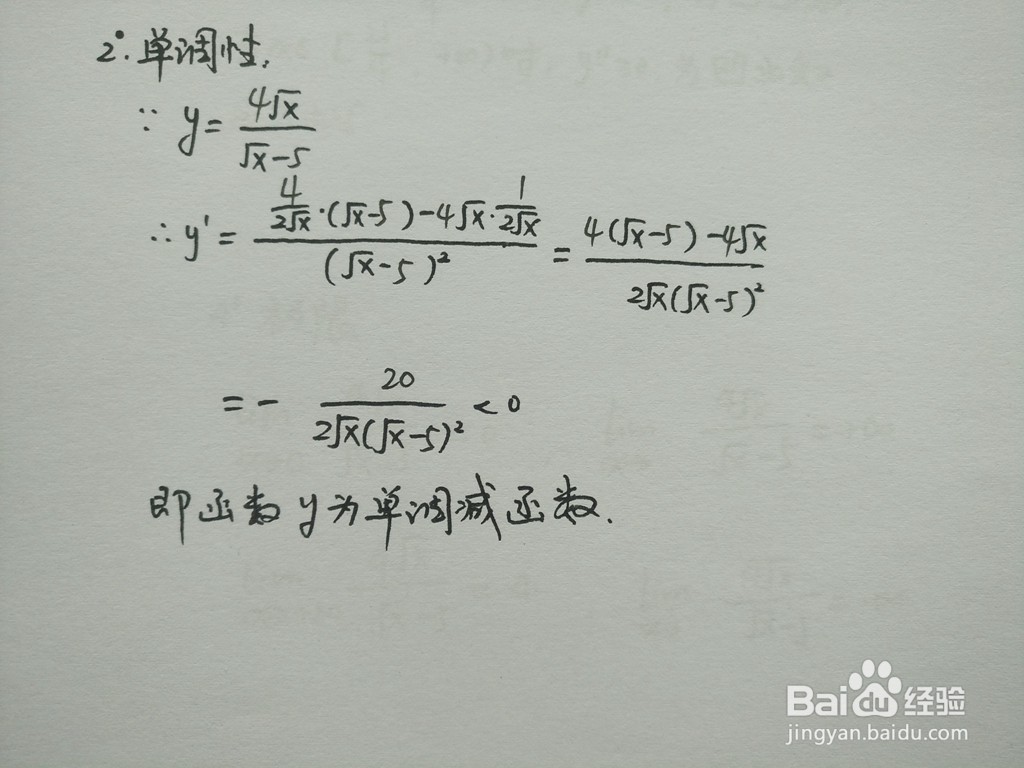 2°.单调性.
∵ y = 4√x / (√x-5)
∴ y' = [4/(2√x)·(√x-5)-4√x·1/(2√x)] / (√x-5)² = [4(√x-5)-4√x] / [2√x(√x-5)²]
= - 20 / [2√x(√x-5)²] < 0
即函数y为单调减函数.
Baidu经验
jingyan.baidu.com